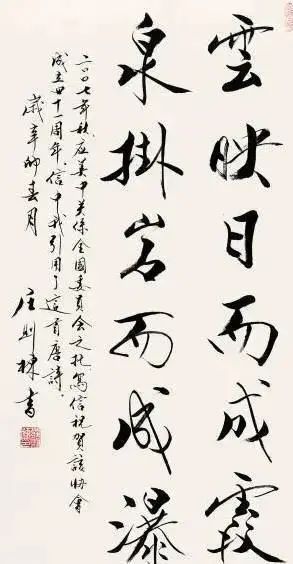 雲映日而成霞
泉掛岩而成瀑
二〇〇七年秋，应美中关係全國委員会之托寫信祝賀該协會
成立四十一周年，信中我引用了這首唐詩。
歲辛卯春月
庄则棟書